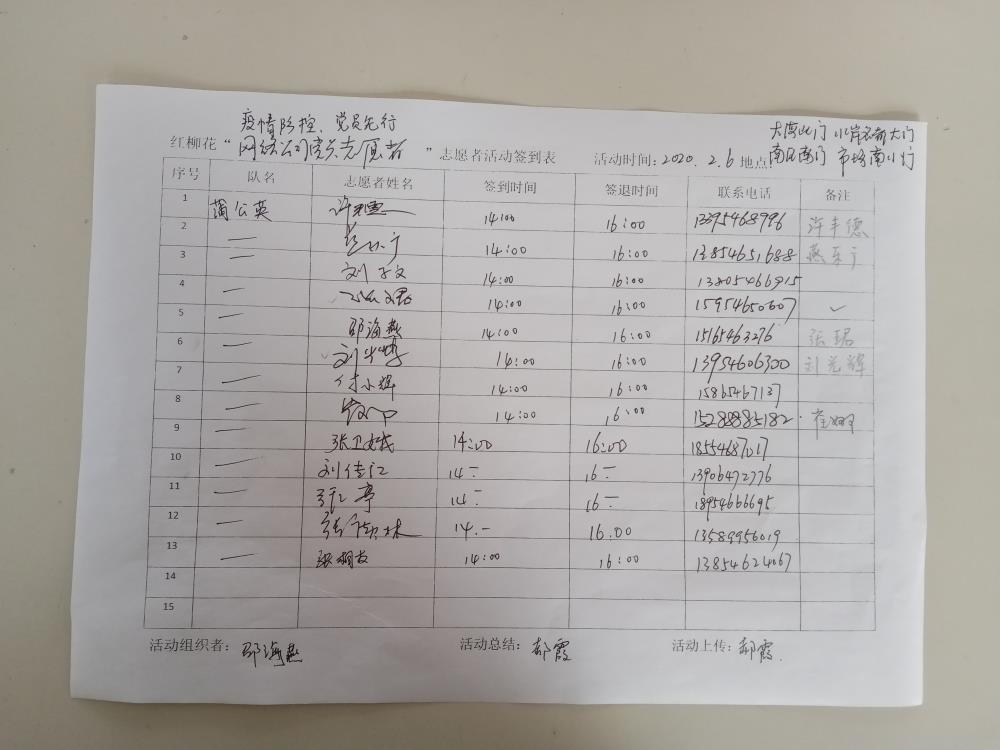 疫情防控、党员先行 大湾北门
红柳花“网络公司党员志愿者”志愿者活动签到表 活动时间:2020.2.6 地点: 南区南门 市场南小灯
序号 队名 志愿者姓名 签到时间 签退时间 联系电话 备注
1 蒲公英 14:00 16:00 许丰德
2 — 14:00 16:00 13854651688
3 — 刘子文 14:00 16:00 13805466915
4 — 14:00 16:00 15954650607 ✓
5 — 邵海燕 14:00 16:00 15165463276 张琚
6 — 14:00 16:00 13954606300 刘光辉
7 — 付小辉 14:00 16:00 15865467137
8 — 14:00 16:00 15288885182 崔娜
9 — 张卫娥 14:00 16:00 18554687017
10 — 刘佳江 14— 16— 13906472776
11 — 14— 16— 18954666695
12 — 14.- 16.00 13589956019
13 — 14:00 16:00 13854624067
14
15
活动组织者: 邵海燕 活动总结: 郝霞 活动上传: 郝霞